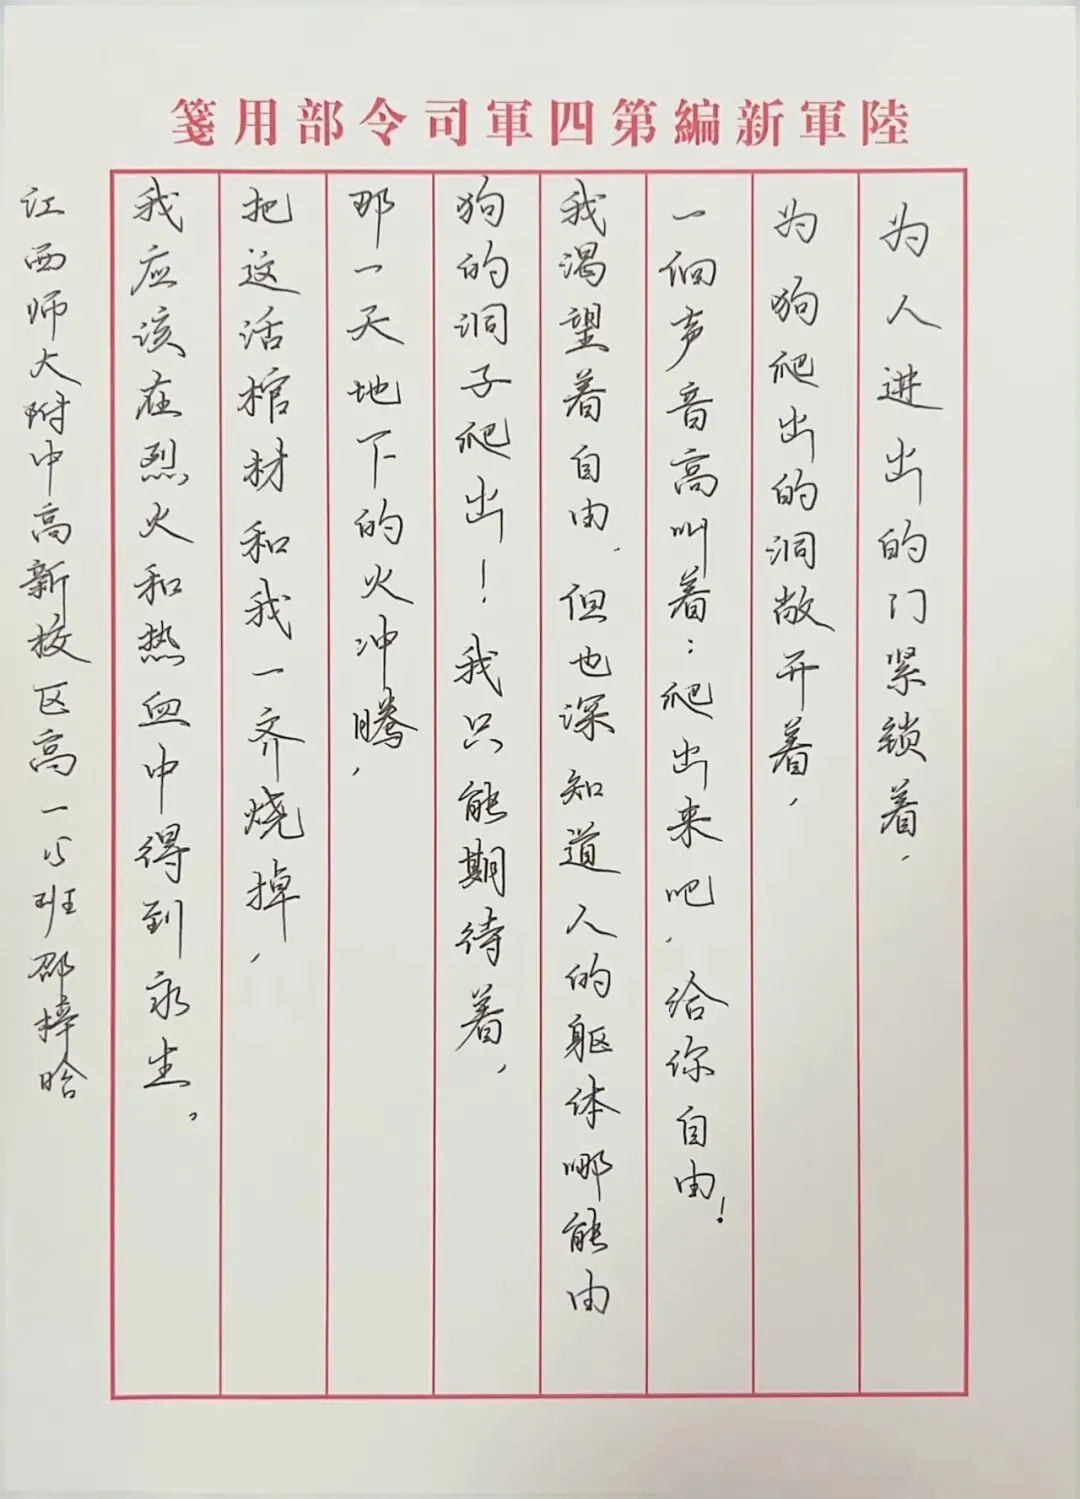 陸軍新編第四軍司令部用箋
为人进出的门紧锁着，
为狗爬出的洞敞开着，
一個声音高叫着：爬出来吧，给你自由！
我渴望着自由，但也深知道人的躯体哪能由
狗的洞子爬出！我只能期待着，
那一天地下的火冲腾，
把这活棺材和我一齐烧掉，
我应该在烈火和热血中得到永生。
江西师大附中高新校区高一班邵梓晗